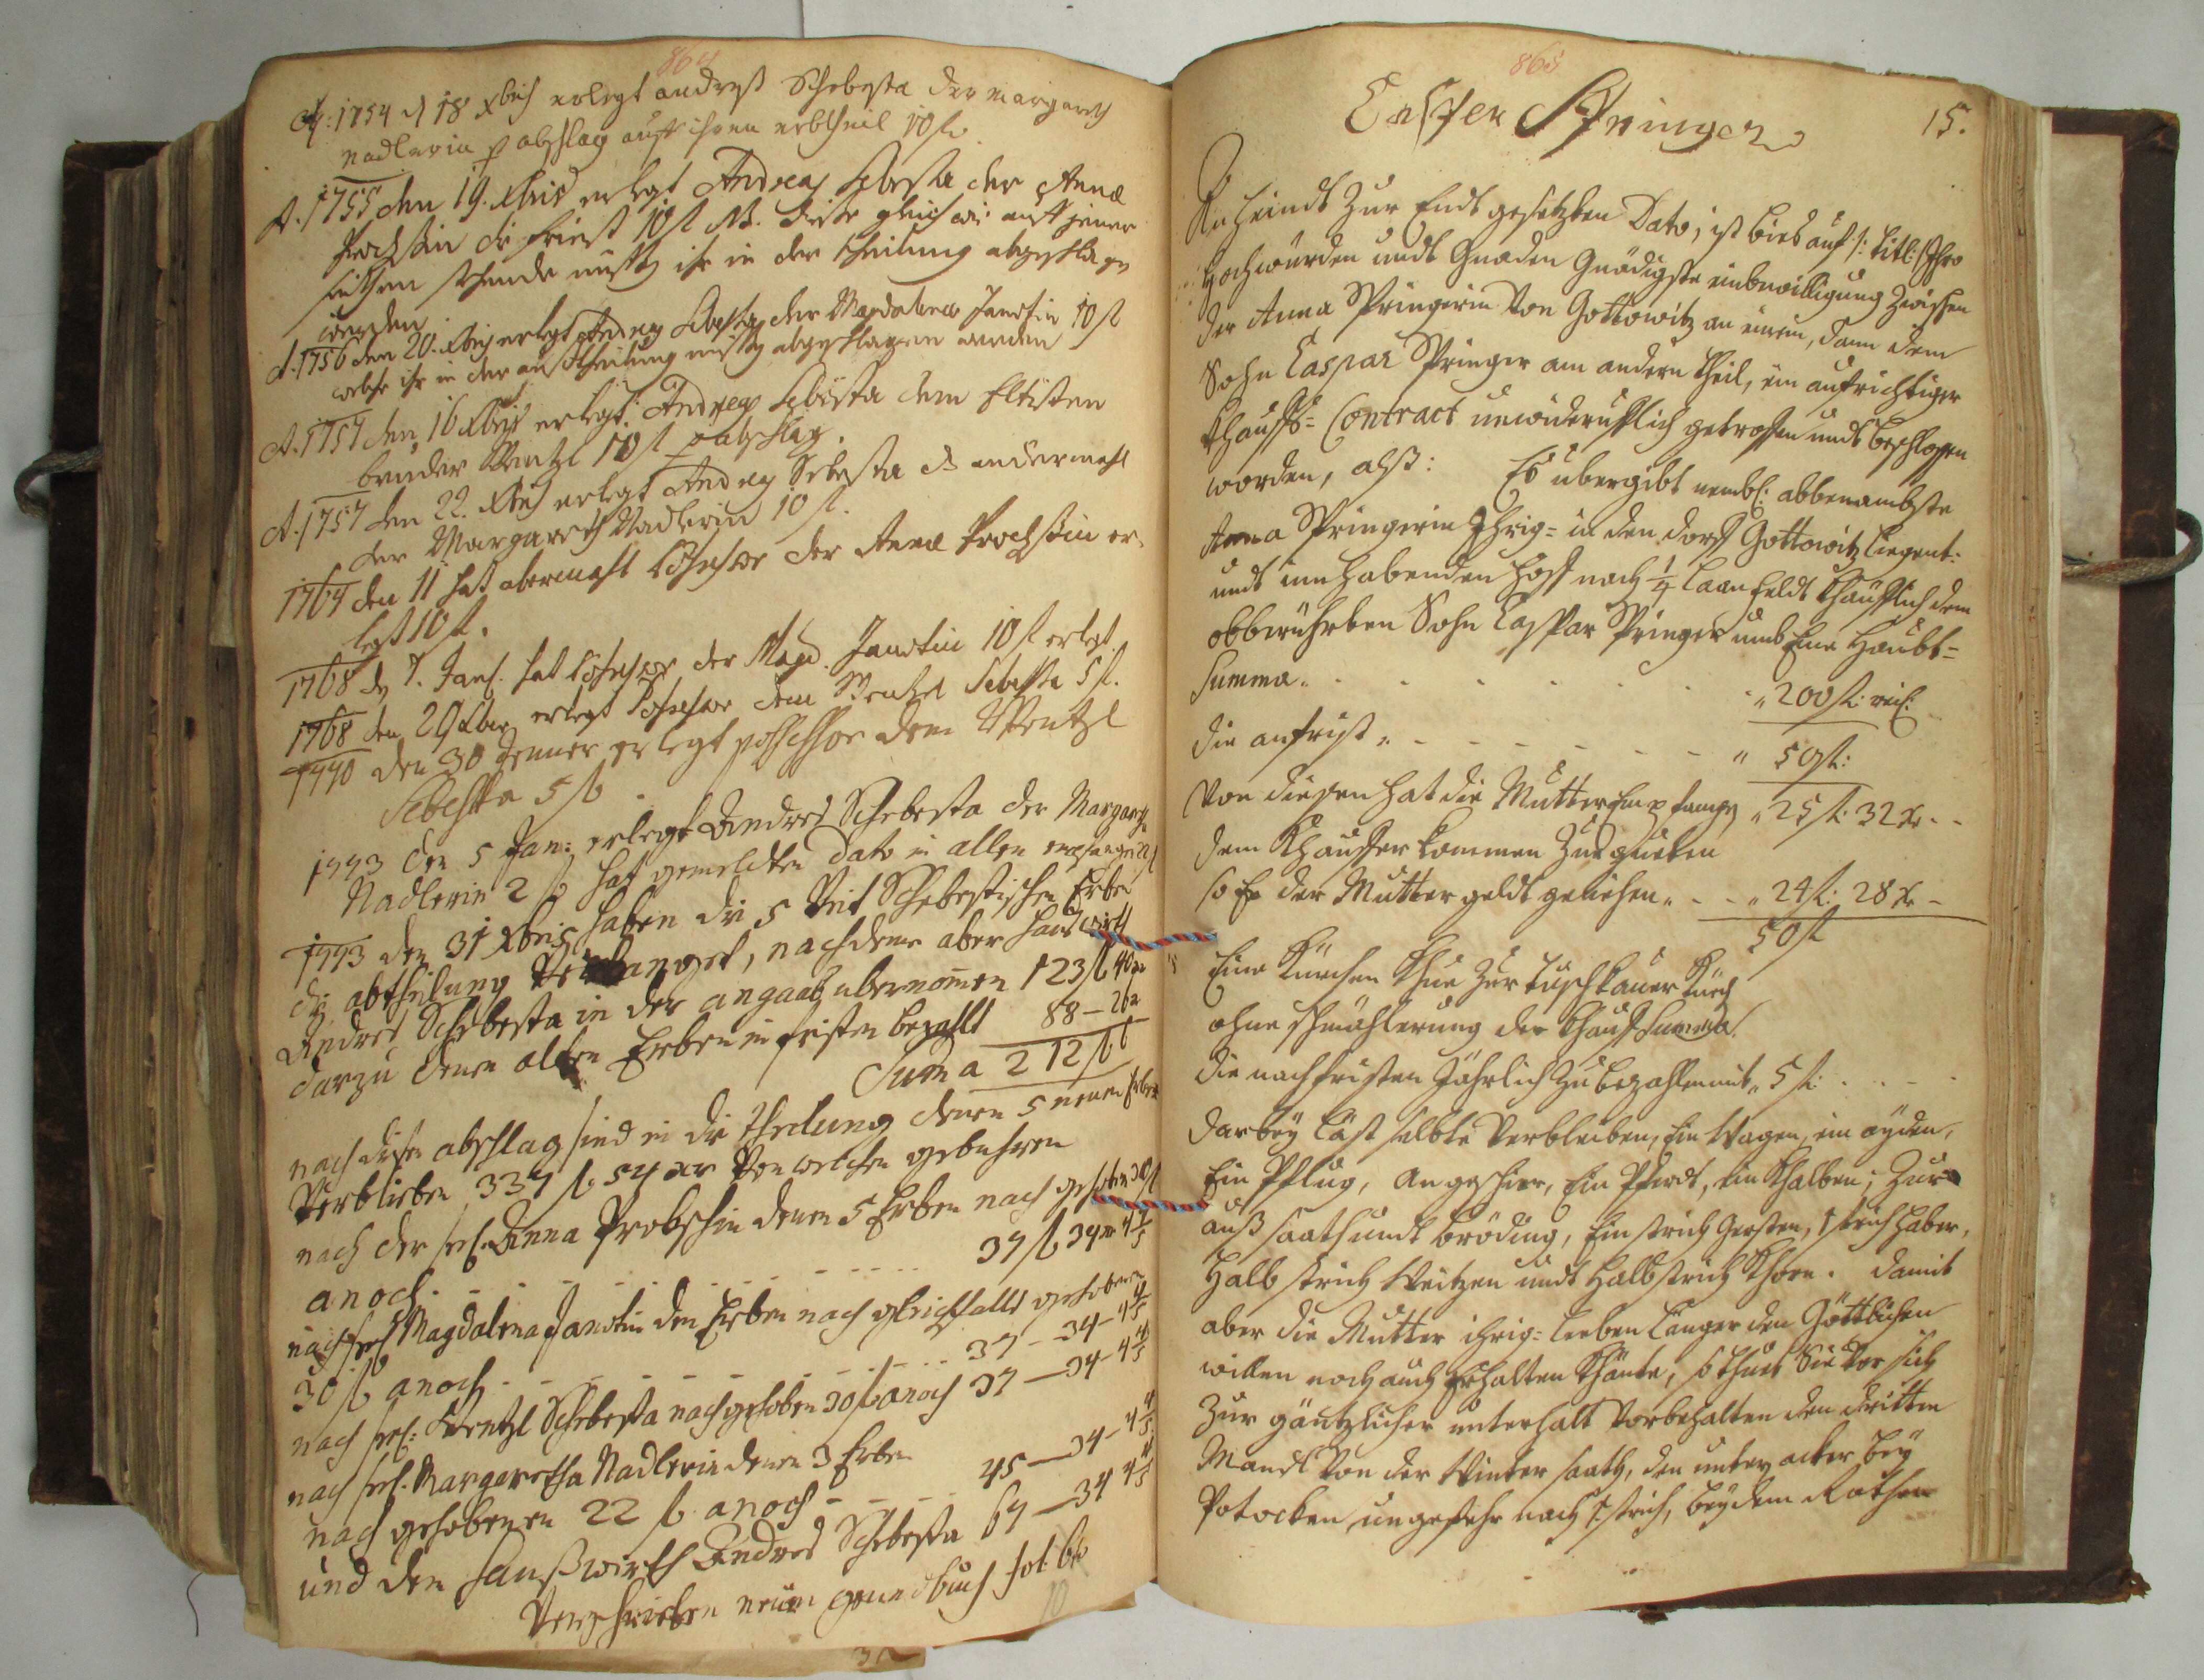 864
Ao: 1754 d 18 Xbris erlegt andreß Schebesta der margareth
nadlerin p abschlag auff ihren erbtheil 10 fl.
A. 1755 den 19. Xbris erlegt Andreas Sebesta der Anna
Prochßin die Friest 10 fl NB. diese gleich wie auff jener
seithen stehende muß ihr in der theilung abgeschlagen
werden.
A. 1756 den 20. Xbris erlegt Andreas Sebesta der Magdalena Janotin 10 fl
welche ihr in der auß theilung muß abgeschlagen werden
A. 1757 den 16 Xbris erlegt Andreas Sebesta dem Eltisten
bruder Wentzl 10 fl p abschlag.
A. 1757 den 22. Xbris erlegt Andreas Sebesta andermahl
der Margareth Nadlerin 10 fl.
1764 den 11 hat abermahl Possessor der Anna Prochßin er-
legt 10 fl.
1768 d 7. Jan. hat Possessor der Magd. Janotin 10 fl erlegt
1768 den 29 Xber erlegt Possessor dem Wentzl Sebesta 5 fl.
1770 den 30 Jenner erlegt possessor dem Wentzl
Sebesta 5 fl.
1773 den 5 Jan: erlegt Andres Schebesta der Margareth
Nadlerin 2 fl hat gemeldten dato in allen empfangen 22 fl
1773 den 31 Xbris haben die 5 Veit Schebestischen Erben
die abtheilung verlanget, nachdeme aber hauswirth
Andres Schebesta in der angaab übernommen 123 fl 40 xr
darzu denen alten Erben in fristen bezahlt 88 – 20
Suma 212 fl
nach disen abschlag sind in die theilung denen 5 neuen Erben
Verblieben 337 fl 54 xr Von welchen gebuhren
nach der sel. Anna Probschin denen 5 Erben nach gehoben 30 fl
anoch . - - - - - - 37 fl 34 xr 4 4/5
nach sel Magdalena Janotin den Erben nach gleichfalls gehobenen
30 fl anoch - - - - - - 37 – 34 – 4 4/5
nach sel: Wentzl Schebesta nach gehoben 30 fl anoch 37 – 34 – 4 4/5
nach sel. Margaretha Nadlerin denen 3 Erben
nach gehobenen 22 fl anoch - - - 45 – 34 – 4 4/5
und den Haußwirth Andres Schebesta 67 – 34 4 4/5
Verschrieben neüen grundbuch fol:
865
15.
Casper Springer
An heindt zur Endt gesetzten Dato, ist bies auf /: titl: Ihro
Hochwürden undt Gnaden Gnädigste einbewilligung zwischen
der Anna Springerin von Gottowitz an einem, dann dem
Sohn Caspar Springer am andern theil, ein aufrichtiger
Khauffs= Contract unwiderufflich getroffen undt beschlossen
worden, alß: Es übergibt nembl: obbenambste
Anna Springerin Ihrig= in den dorff Gottowitz liegent:
undt inn habenden Hoff nach 1/4 laan feldt Khäufflich dem
obberührten Sohn Caspar Springer umb Eine Haubt=
Summa. - - - - - - „ 200 fl: reil:
die anfrist „ - - - - - - „ 50 fl:
Von diesen hat die Mutter Empfangen „ 25 fl: 32 xr - -
dem Khauffer kommen zu guetten
so Er der Mutter geldt geliehen „ - - „ 24 fl: 28 xr -
50 fl
Eine Kürchen Khue zur Luschkauer Kürch
ohne schmählerung der Khauff Summa.
die nachfristen Jährlich zu bezahlen mit „ 5 fl: - - -
darbey läst selbte Verbleiben, Ein Wagen, ein ayden,
Ein Pflug, an geschier, Ein Pferdt, ein Khalben; Zur
auß saath undt brödung, Ein strich Gersten, 1 strich haber,
Halb strich Weitzen undt Halb strich Khorn. damit
aber die Mutter ihrig= leeben länger den Göttlichen
willen noch auch Erhalten Khänte, so thuet Sie vor sich
zur gäntzlicher unterhalt Vorbehalten den dritten
Mandl Von der Winter saath, den unter acker bey
Potocken ungefehr nach 1 strich, bey dem Rothen